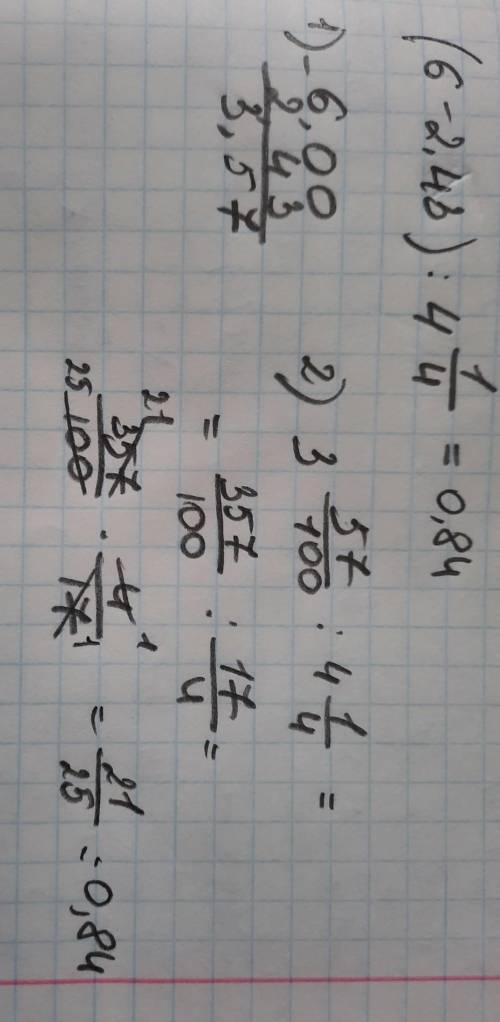 (6 - 2,43) : 4 1/4 = 0,84
1) - 6,00
2 43
3,57
2) 3 57/100 : 4 1/4 =
= 357/100 : 17/4 =
21 357/100 25 · 4 1/17 1 = 21/25 = 0,84